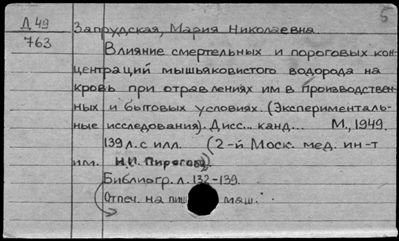 Д 49
763
5
Запрудская, Мария Николаевна.
Влияние смертельных и пороговых кон-
центраций мышьяковистого водорода на
кровь при отравлениях им в производствен-
ных и бытовых условиях. (Эксперименталь-
ные исследования). Дисс... канд... М., 1949.
139 л. с илл. (2-й Моск. мед. ин-т
им. Н.И. Пирогова)
Библиогр. л. 132-139.
Отпеч. на пиш маш.